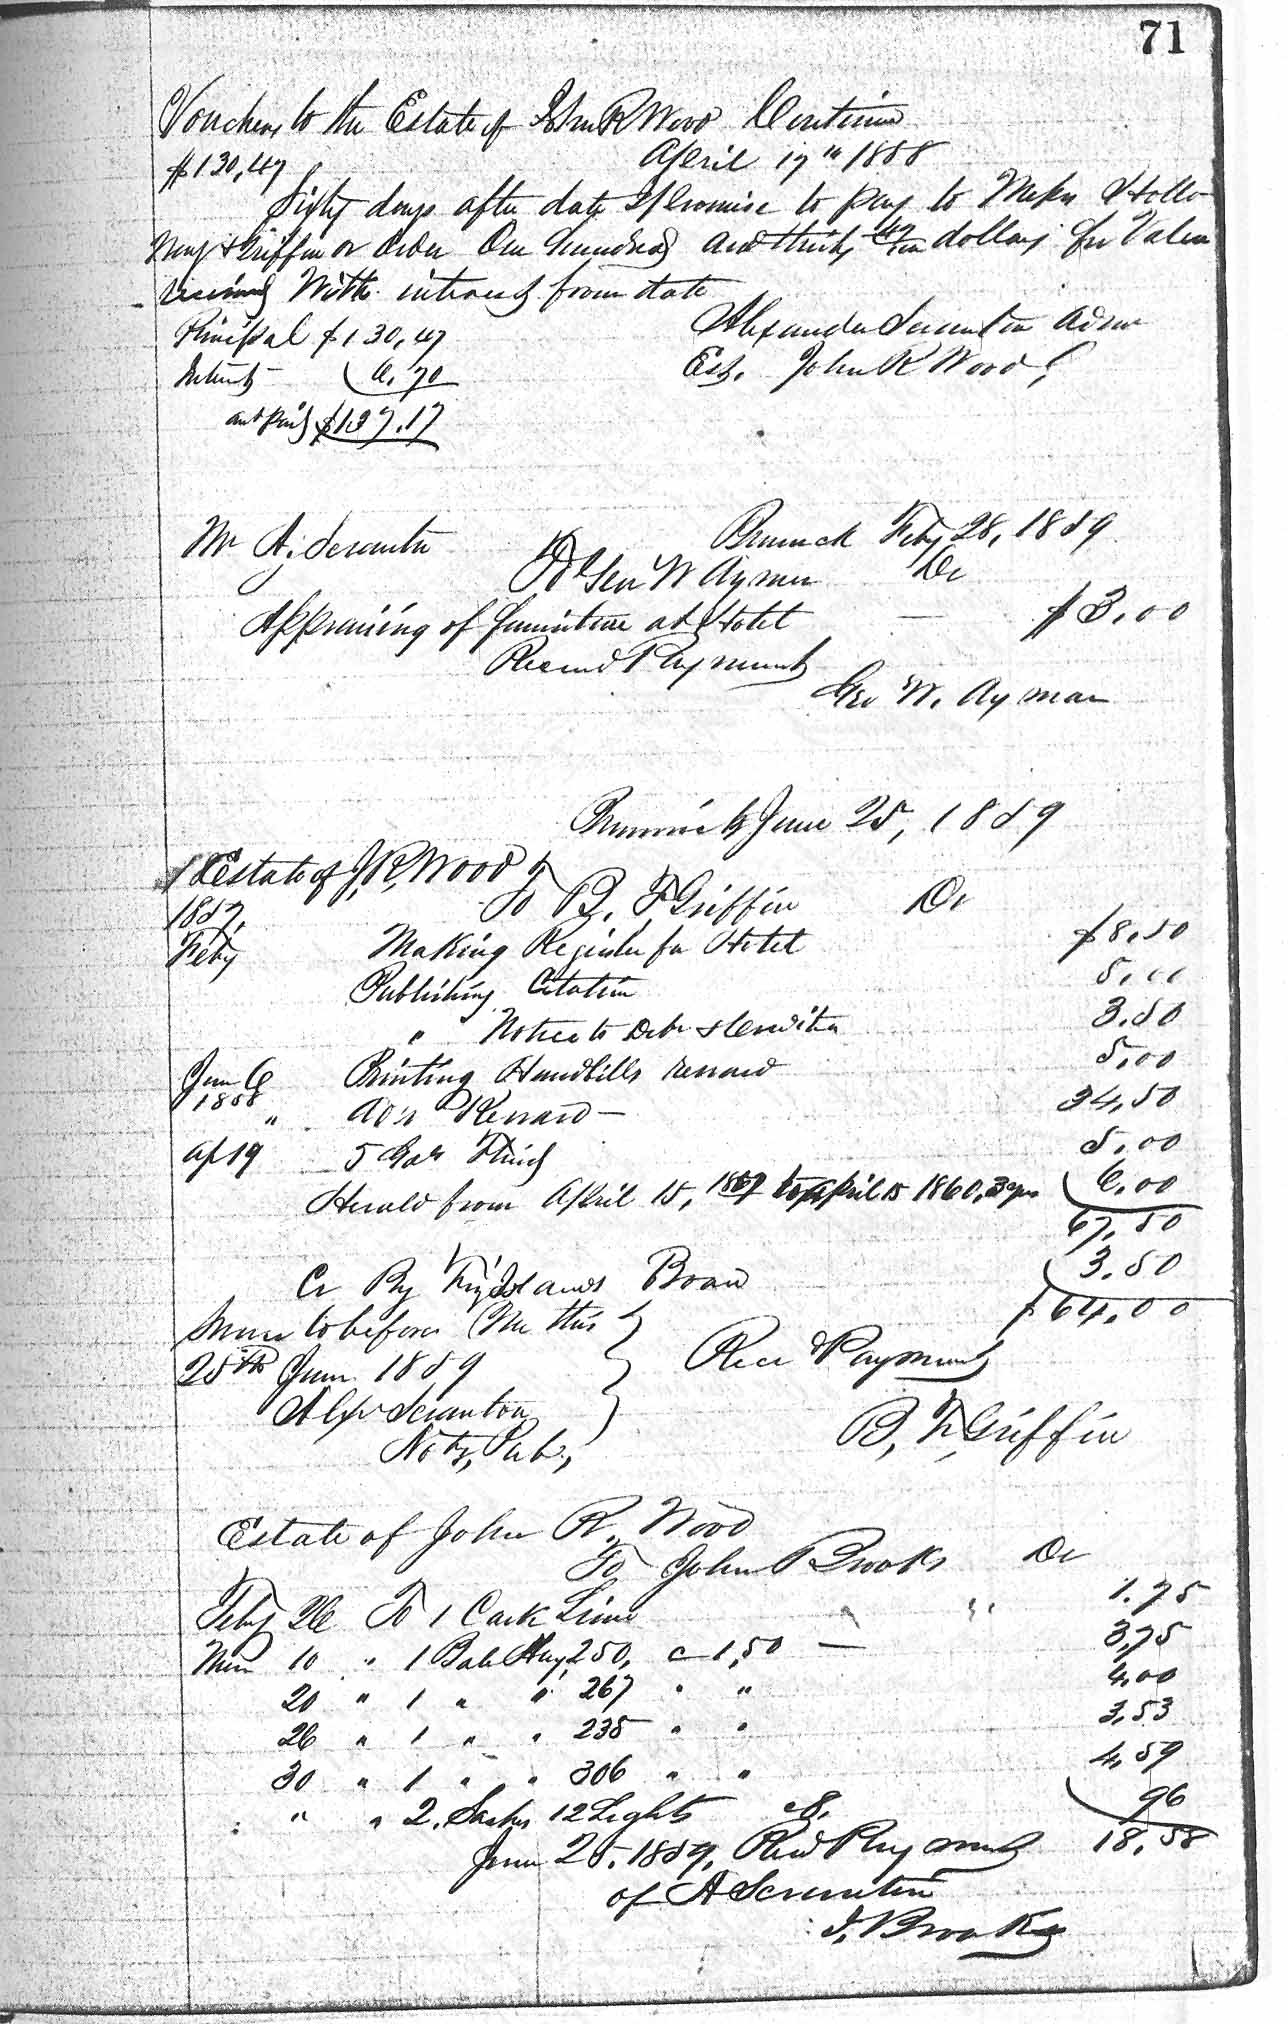 71
Vouchers to the Estate of John R Wood Continued
$130,47 April 17th 1858
Sixty days after date I Promise to pay to Messrs Hollo
way & Griffin or Order One hundred and thirty 47/100 dollars for Value
received With interest from date
Principal $130,47 Alexander Scranton Admr
Interest 6.70 Est. John R Wood
amt paid $137.17
Brunswick Feby 28, 1859
Mr A, Scranton
To Geo W Ayman Dr
Appraising of furniture at Hotel — $3.00
Received Payment
Geo W. Ayman
Brunswick June 25, 1859
Estate of J, R, Wood
1857, To B. F. Griffin Dr
Feby Making Register for Hotel $8.50
Publishing Citation 5.00
" Notice to Debr & Creditor 3.50
Jan 6 Printing Handbills reward 5.00
1858 " Advr Reward — 34,50
Ap 19 5 Gals Fluid 5.00
Herald from April 15, 1857 to April 15 1860, 3 yrs 6.00
67,50
Cr By Board 3.50
$64,00
Sworn to before Me this
25th June 1859 Recd Payment
Alexr Scranton
Noty, Pub, B, F, Griffin
Estate of John R. Wood
To John Brooks Dr
Feby 26 To 1 Cask Lime 1.75
Mar 10 " 1 Bale Hay 250, c 1,50 — 3,75
20 " 1 " " 267 " " 4.00
26 " 1 " " 235 " " 3,53
30 " 1 " " 306 " " 4,59
" " 2, Sashes 12 Lights 8. 96
June 25, 1859, Recd Payment 18,58
of A Scranton
J. Brooks